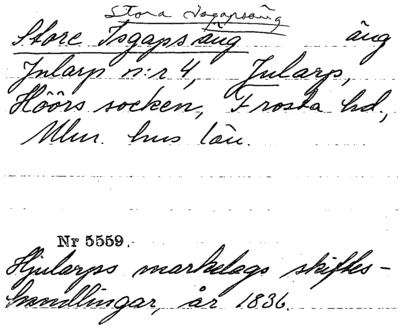 Stora Isgapsäng
Store Isgaps äng äng
Jularp n:r 4, Jularp,
Höörs socken, Frosta hd.,
Mlm. hus län.
Nr 5559.
Hjularps markelags skiftes-
handlingar, år 1836.